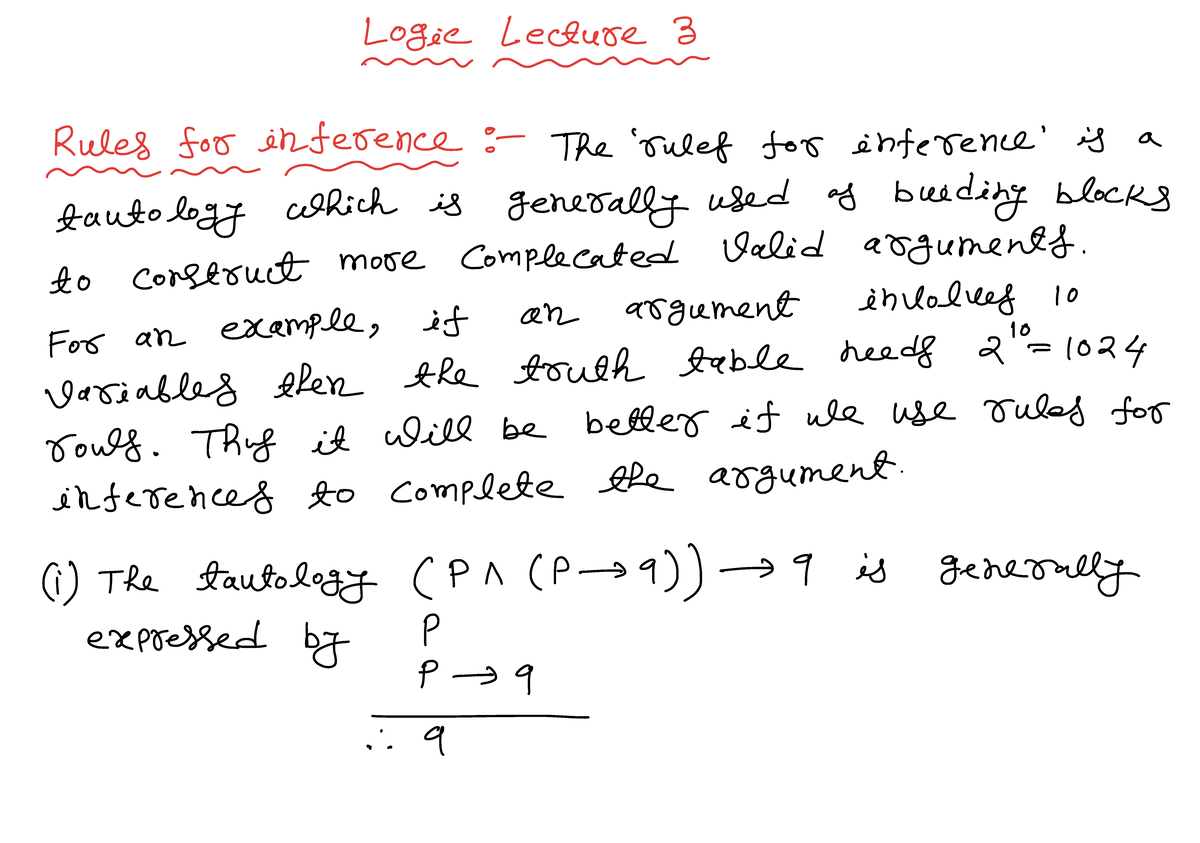 Logic Lecture 3
Rules for inference :- The 'rules for inference' is a
tautology which is generally used as buiding blocks
to construct more Complecated Valid arguments.
For an example, if an argument involves 10
Variables then the truth table needs 2¹⁰ = 1024
rows. Thus it will be better if we use rules for
inferences to complete the argument.
(i) The tautology (P ∧ (P → q)) → q is generally
expressed by P
P → q
∴ q